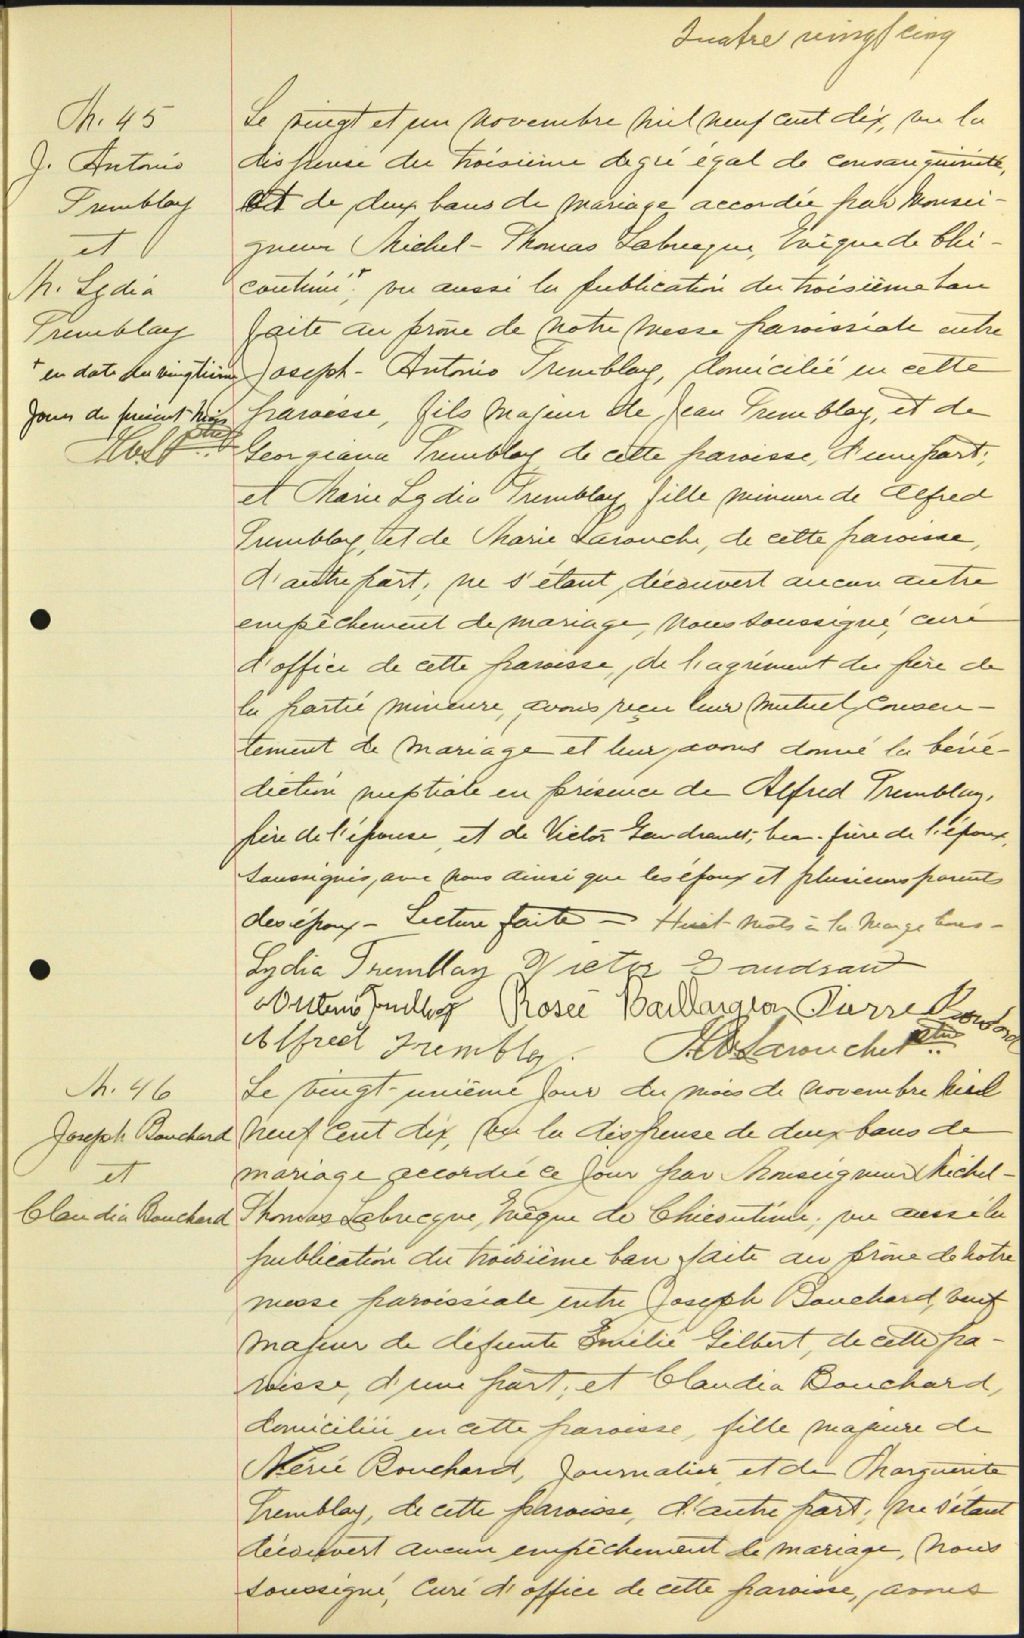 Quatre vingt cinq
M. 45
J. Antonio
Tremblay
et
M. Lydia
Tremblay
+ en date du vingtième
jour du présent mois
ptre
Le vingt et un novembre mil neuf cent dix, vu la
dispense du troisième degré égal de consanguinité,
et de deux bans de mariage accordée par Monsei-
gneur Michel-Thomas Labrecque, Evêque de Chi-
coutimi,+ vu aussi la publication du troisième ban
faite au prône de notre messe paroissiale entre
Joseph-Antonio Tremblay, domicilié en cette
paroisse, fils majeur de Jean Tremblay, et de
Georgiana Tremblay de cette paroisse, d'une part;
et Marie Lydia Tremblay fille mineure de Alfred
Tremblay, et de Marie Larouche, de cette paroisse,
d'autre part; ne s'étant découvert aucun autre
empêchement de mariage, nous soussigné, curé
d'office de cette paroisse, de l'agrément du père de
la partie mineure, avons reçu leur mutuel consen-
tement de mariage et leur avons donné la béné-
diction nuptiale en présence de Alfred Tremblay,
père de l'épouse, et de Victor Gaudreault, beau-frère de l'époux,
soussignés, avec nous ainsi que les époux et plusieurs parents
des époux - Lecture faite - Huit mots à la marge bons -
Lydia Tremblay Victor Gaudraut
Antonio Tremblay Rosée Baillargeon Pierre
Alfred Tremblay. Larouche ptre
M. 46
Joseph Bouchard
et
Claudia Bouchard
Le vingt-unième jour du mois de novembre mil
neuf cent dix, vu la dispense de deux bans de
mariage accordée ce jour par Monseigneur Michel-
Thomas Labrecque, Evêque de Chicoutimi; vu aussi la
publication du troisième ban faite au prône de notre
messe paroissiale entre Joseph Bouchard, veuf
majeur de défunte Emélie Gilbert, de cette pa-
roisse, d'une part; et Claudia Bouchard,
domiciliée en cette paroisse, fille majeure de
Méríé Bouchard, journalier, et de Marguerite
Tremblay, de cette paroisse, d'autre part; ne s'étant
découvert aucun empêchement de mariage, nous
soussigné, curé d'office de cette paroisse, avons